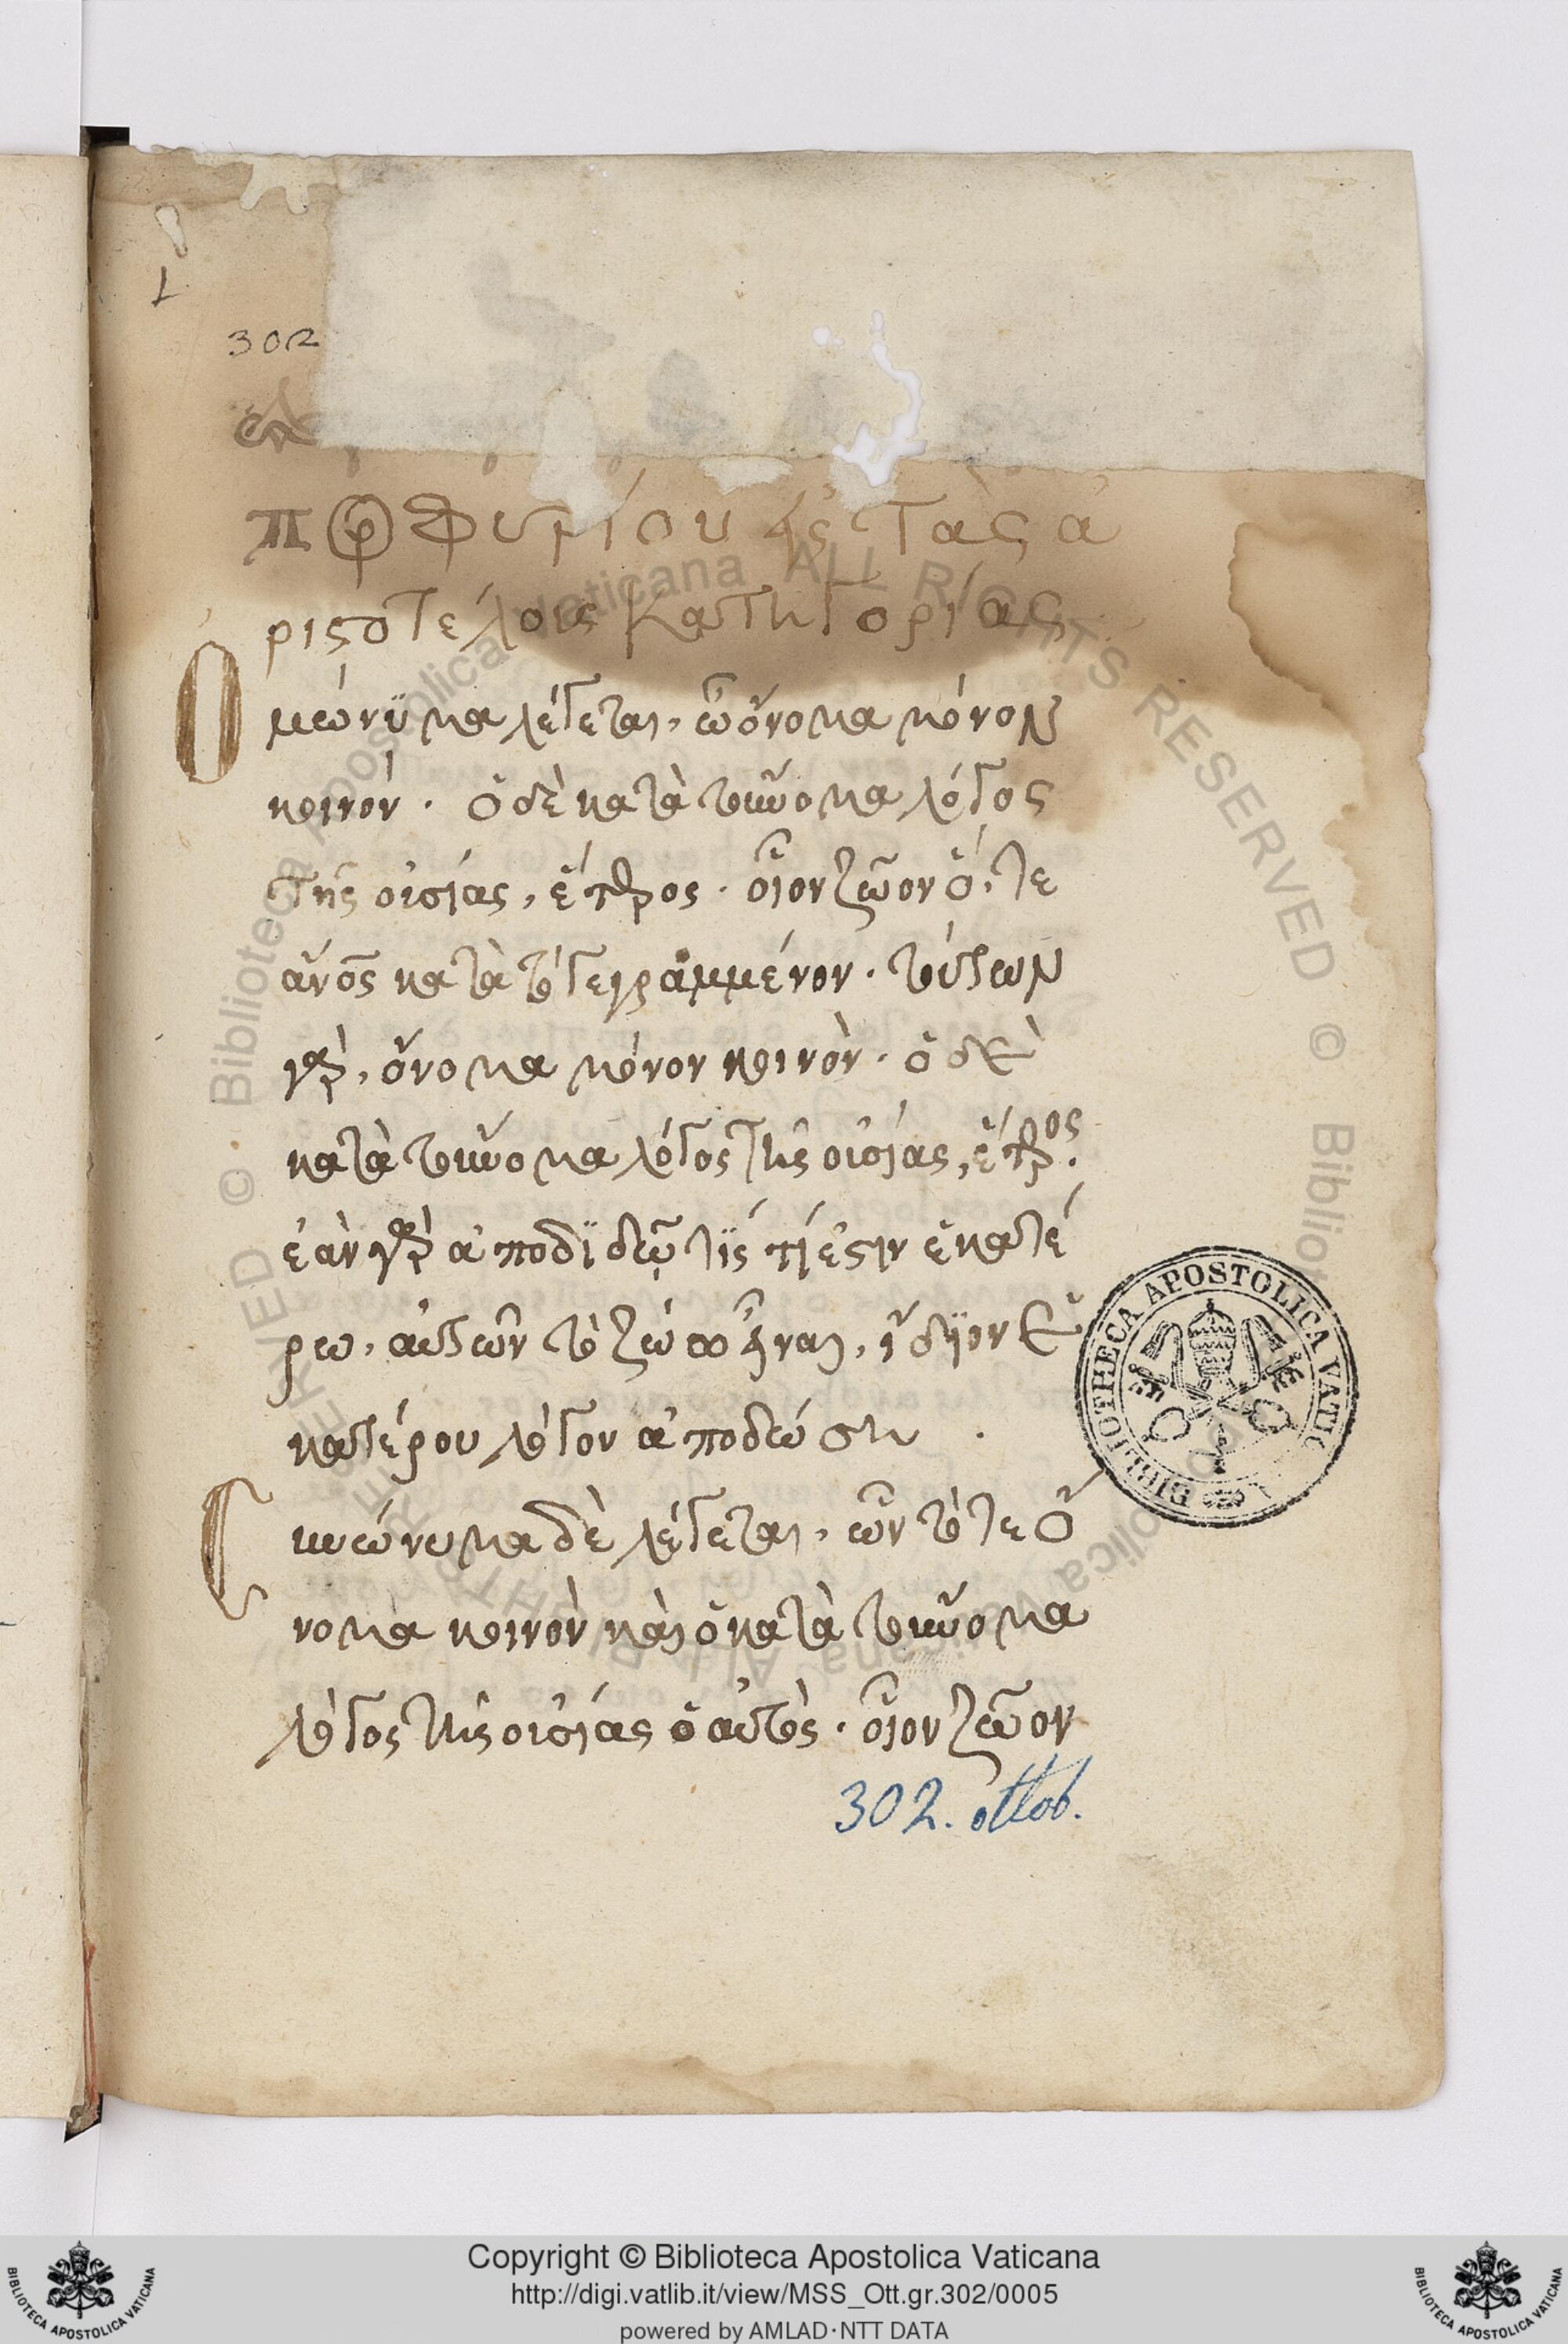 1
302
πορφυρίου εἰς τὰς ἀ
ριστοτέλους κατηγορίας
Ὁ
μώνϋμα λέγεται, ὧν ὄνομα μόνον
κοινόν· ὁ δὲ κατὰ τοὔνομα λόγος
τῆς οὐσίας, ἕτερος· οἷον ζῶον ὅ, τε
ἄνος κατὰ τὸ γεγραμμένον· τούτων
γὰρ, ὄνομα μόνον κοινὸν· ὁ δὲ
κατὰ τοὔνομα λόγος τῆς οὐσίας, ἕτερος.
ἐὰν γὰρ ἀποδϊδῶ τϊς τί ἐστιν ἑκατέ
ρω, αὐτῶν τὸ ζώω εἶναι, ἴδϊον ἑ
κατέρου λόγον ἀποδώση.
Συνώνυμα δὲ λέγεται, ὧν τό τε ὄ
νομα κοινὸν καὶ ὁ κατὰ τοὔνομα
λόγος τῆς οὐσίας ὁ αὐτὸς· οἷον ζῶον
302. ottob.
BIBLIOTHECA APOSTOLICA VATIC
© Biblioteca Apostolica Vaticana ALL RIGHTS RESERVED
Copyright © Biblioteca Apostolica Vaticana
http://digi.vatlib.it/view/MSS_Ott.gr.302/0005
powered by AMLAD·NTT DATA
BIBLIOTECA APOSTOLICA VATICANA
BIBLIOTECA APOSTOLICA VATICANA